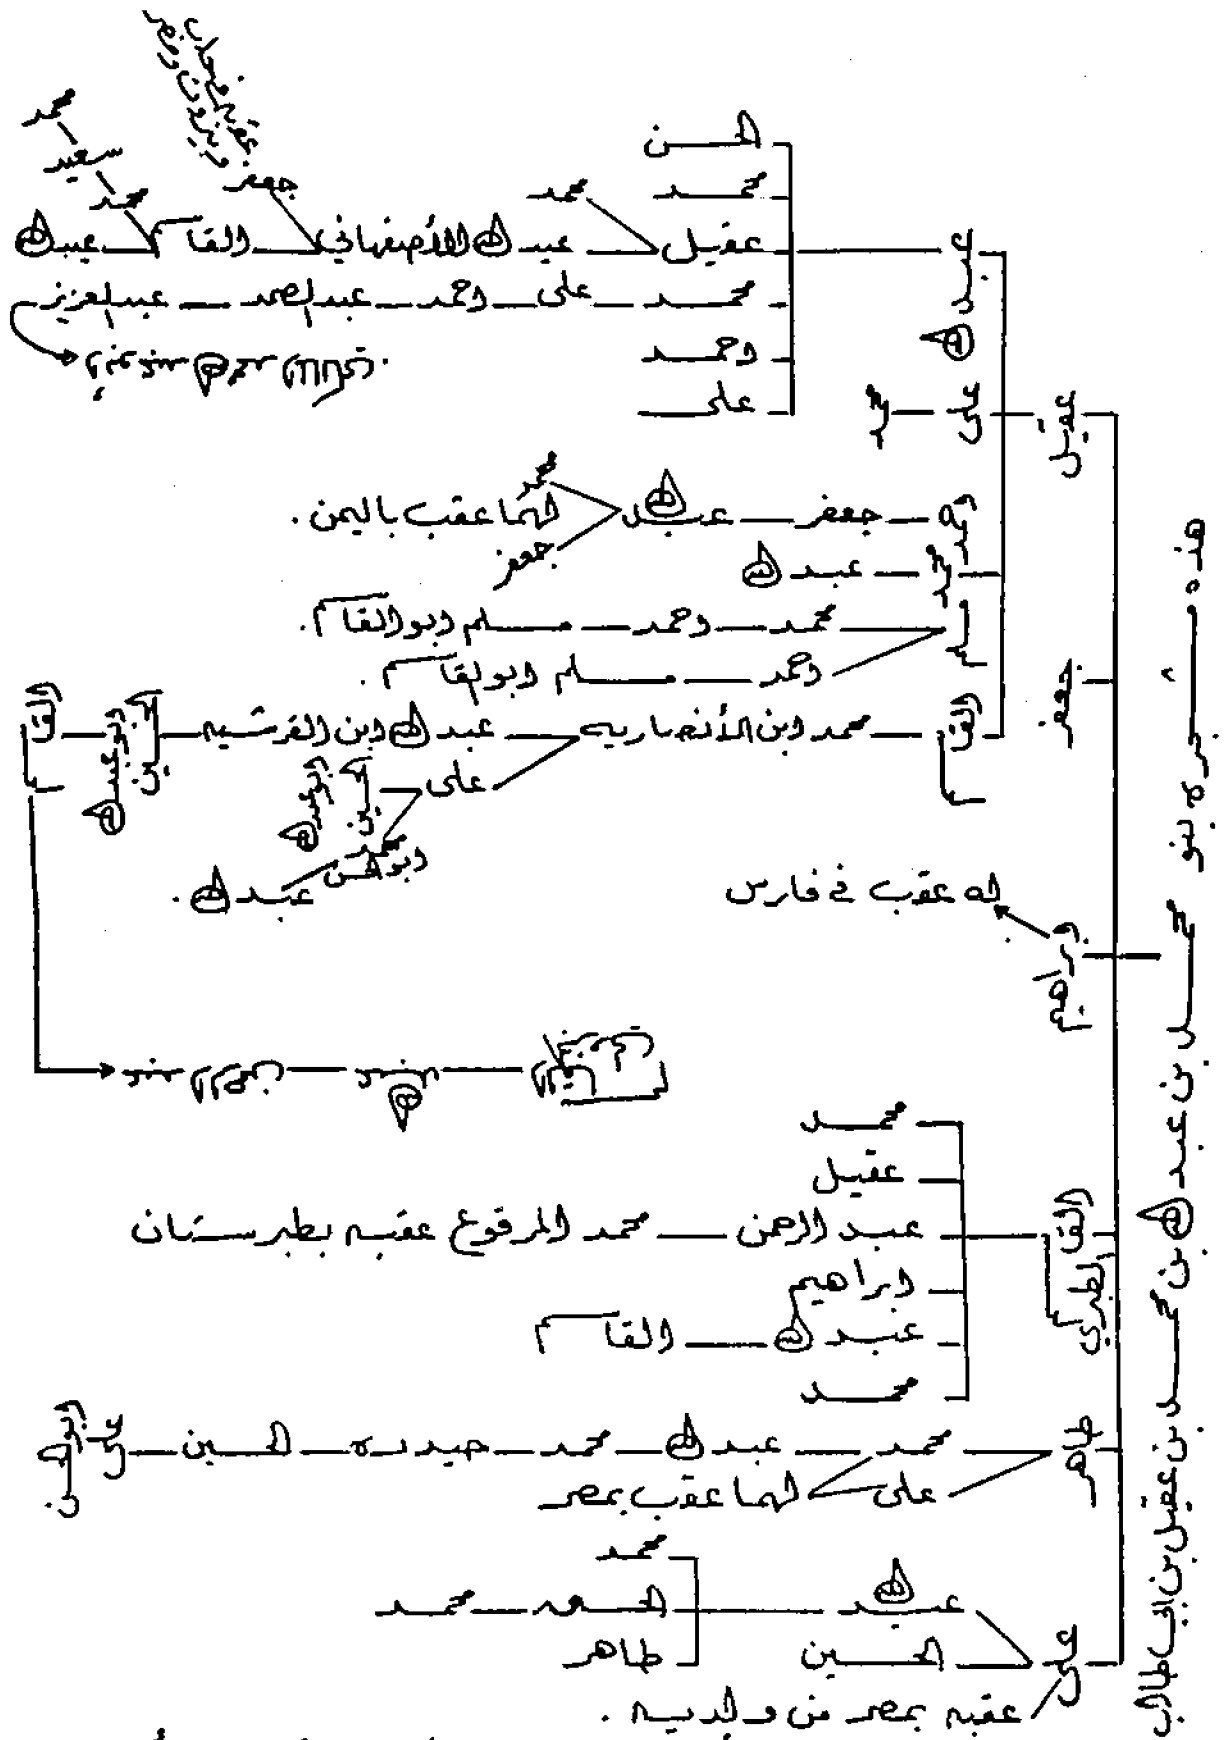 هذه مشجرة بنو محمد بن عبد الله بن محمد بن عقيل بن ابي طالب
عقيل
عبد الله
الحسن
محمد
عقيل
محمد
عبد الله الأصفهاني
جعفر
القاسم
محمد
سعيد
محمد
عبد الله
محمد — على — احمد — عبد الصمد — عبد العزيز
احمد
على
على — محمد
جعفر — عبد الله
محمد
جعفر
لهما عقب باليمن .
محمد — عبد الله
مسلم
محمد — احمد — مسلم ابو القاسم .
احمد — مسلم ابو القاسم .
القاسم
محمد ابن الأنصاريه — عبد الله ابن القرشيه — الحسين ابو عبد الله — القاسم
على
الحسين ابو عبد الله
محمد ابو الحسن
عبد الله .
جعفر
ابراهيم
له عقب في فارس
القاسم الطبري
محمد
عقيل
عبد الرحمن — محمد المرقوع عقبه بطبرستان
ابراهيم
عبد الله — القاسم
محمد
طاهر
محمد — عبد الله — محمد — حيدره — الحسين — على ابو الحسن
على
لهما عقب بمصر
على
عبد الله
محمد
محمد
طاهر
الحسين
عقبه بمصر من ولديه .